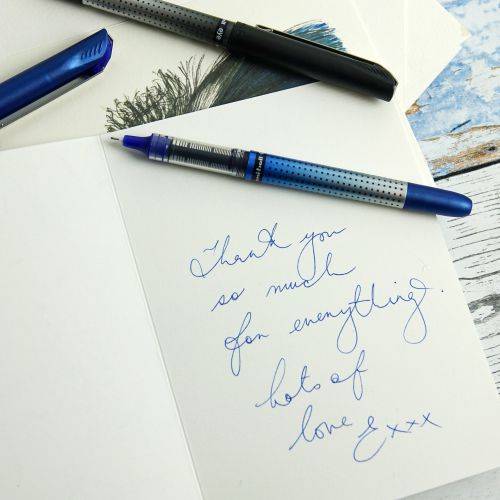 Thank you
so much
for everything.
Lots of
love E xxx